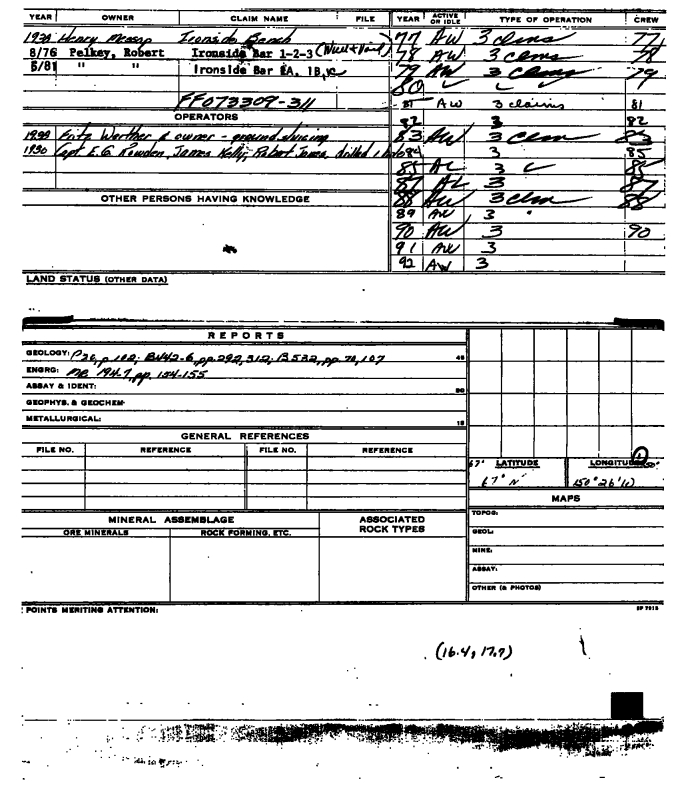 YEAR OWNER CLAIM NAME FILE YEAR ACTIVE OR IDLE TYPE OF OPERATION CREW
1938 Henry Ironside Bench 77 AW 3 clms 77
8/76 Pelkey, Robert Ironside Bar 1-2-3 78 AW 3 clms 78
5/81 " " Ironside Bar EA, 1B, 79 AW 3 clms 79
80 ✓ ✓ ✓
FF073309-311 81 AW 3 claims 81
OPERATORS 82 3 82
1938 Fritz Werther & owner - ground sluicing 83 AW 3 clm 83
1930 Capt. E.G. Rowden, James Kelly, Robert Jones, drilled 1 hole 84 3 85
85 AL 3 ✓ 85
87 AL 3 87
OTHER PERSONS HAVING KNOWLEDGE 88 AW 3 clm 88
89 AW 3 "
90 AW 3 90
91 AW 3
92 AW 3
LAND STATUS (OTHER DATA)
REPORTS
GEOLOGY: P26, p 102; B442-6, pp. 292, 312; B532, pp. 70, 107 45
ENGRG: MR 194-7, pp. 154-155
ASSAY & IDENT: 30
GEOPHYS. & GEOCHEM:
METALLURGICAL: 15
GENERAL REFERENCES
FILE NO. REFERENCE FILE NO. REFERENCE
67° LATITUDE LONGITUDE 150°
67° N 150° 26' W
MAPS
MINERAL ASSEMBLAGE ASSOCIATED ROCK TYPES
ORE MINERALS ROCK FORMING, ETC.
TOPOG:
GEOL:
MINE:
ASSAY:
OTHER (& PHOTOS)
POINTS MERITING ATTENTION:
(16.4, 17.7)